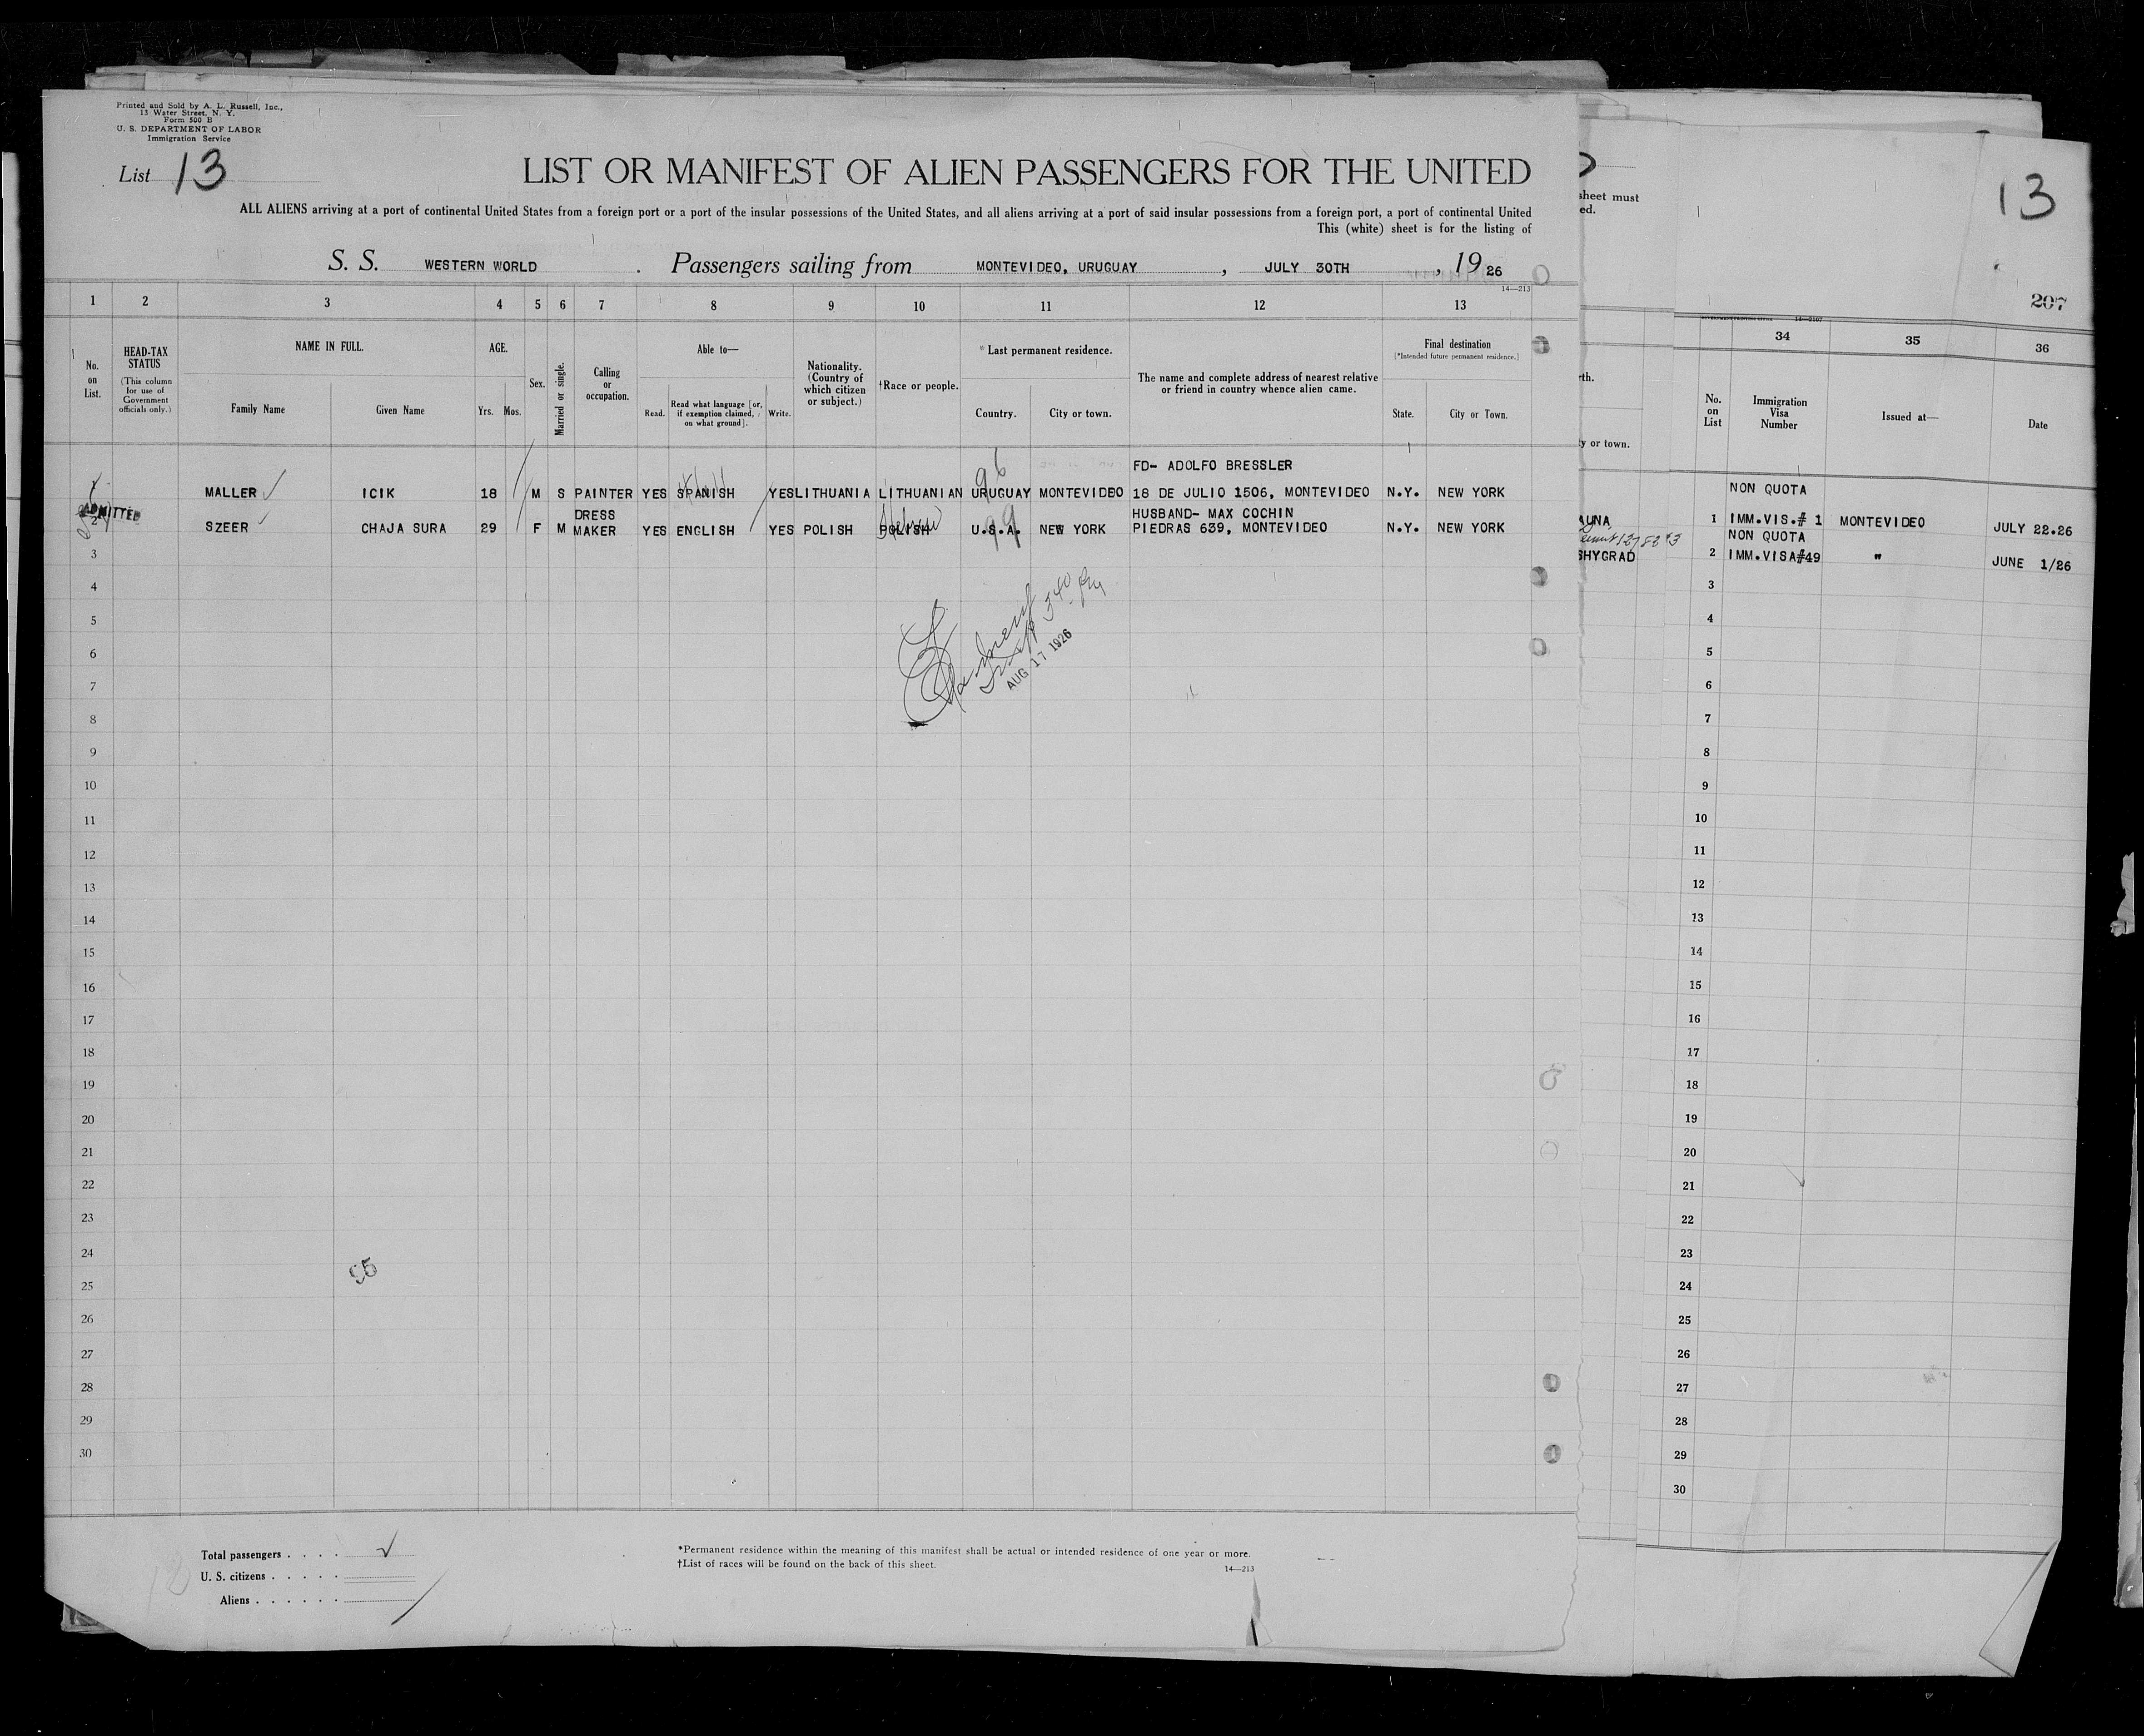 Printed and Sold by A. L. Russell, Inc.,
13 Water Street, N. Y.
Form 500 B
U. S. DEPARTMENT OF LABOR
Immigration Service
List 13
LIST OR MANIFEST OF ALIEN PASSENGERS FOR THE UNITED
ALL ALIENS arriving at a port of continental United States from a foreign port or a port of the insular possessions of the United States, and all aliens arriving at a port of said insular possessions from a foreign port, a port of continental United
This (white) sheet is for the listing of
S. S. WESTERN WORLD . Passengers sailing from MONTEVIDEO, URUGUAY , JULY 30TH , 1926
14—213
1 2 3 4 5 6 7 8 9 10 11 12 13
No. on List.
HEAD-TAX STATUS
(This column for use of Government officials only.)
NAME IN FULL.
Family Name
Given Name
AGE.
Yrs. Mos.
Sex.
Married or single.
Calling or occupation.
Able to—
Read.
Read what language [or, if exemption claimed, on what ground].
Write.
Nationality. (Country of which citizen or subject.)
†Race or people.
*Last permanent residence.
Country.
City or town.
The name and complete address of nearest relative or friend in country whence alien came.
Final destination
(*Intended future permanent residence.)
State.
City or Town.
FD- ADOLFO BRESSLER
96
MALLER ICIK 18 M S PAINTER YES SPANISH YES LITHUANIA LITHUANIAN URUGUAY MONTEVIDEO 18 DE JULIO 1506, MONTEVIDEO N.Y. NEW YORK
ADMITTED
DRESS
HUSBAND- MAX COCHIN
2 SZEER CHAJA SURA 29 F M MAKER YES ENGLISH YES POLISH POLISH Hebrew U.S.A. 99 NEW YORK PIEDRAS 639, MONTEVIDEO N.Y. NEW YORK
3
4
5
6
7
8
9
10
11
12
13
14
15
16
17
18
19
20
21
22
23
24
25
26
27
28
29
30
AUG 17 1926
Total passengers . . . .
U. S. citizens . . . . .
Aliens . . . . . .
*Permanent residence within the meaning of this manifest shall be actual or intended residence of one year or more.
†List of races will be found on the back of this sheet.
14—213
sheet must
ed.
13
207
34 35 36
rth.
y or town.
No. on List
Immigration Visa Number
Issued at—
Date
NON QUOTA
AUNA 1 IMM.VIS.# 1 MONTEVIDEO JULY 22.26
NON QUOTA
SHYGRAD 2 IMM.VISA#49 " JUNE 1/26
3
4
5
6
7
8
9
10
11
12
13
14
15
16
17
18
19
20
21
22
23
24
25
26
27
28
29
30